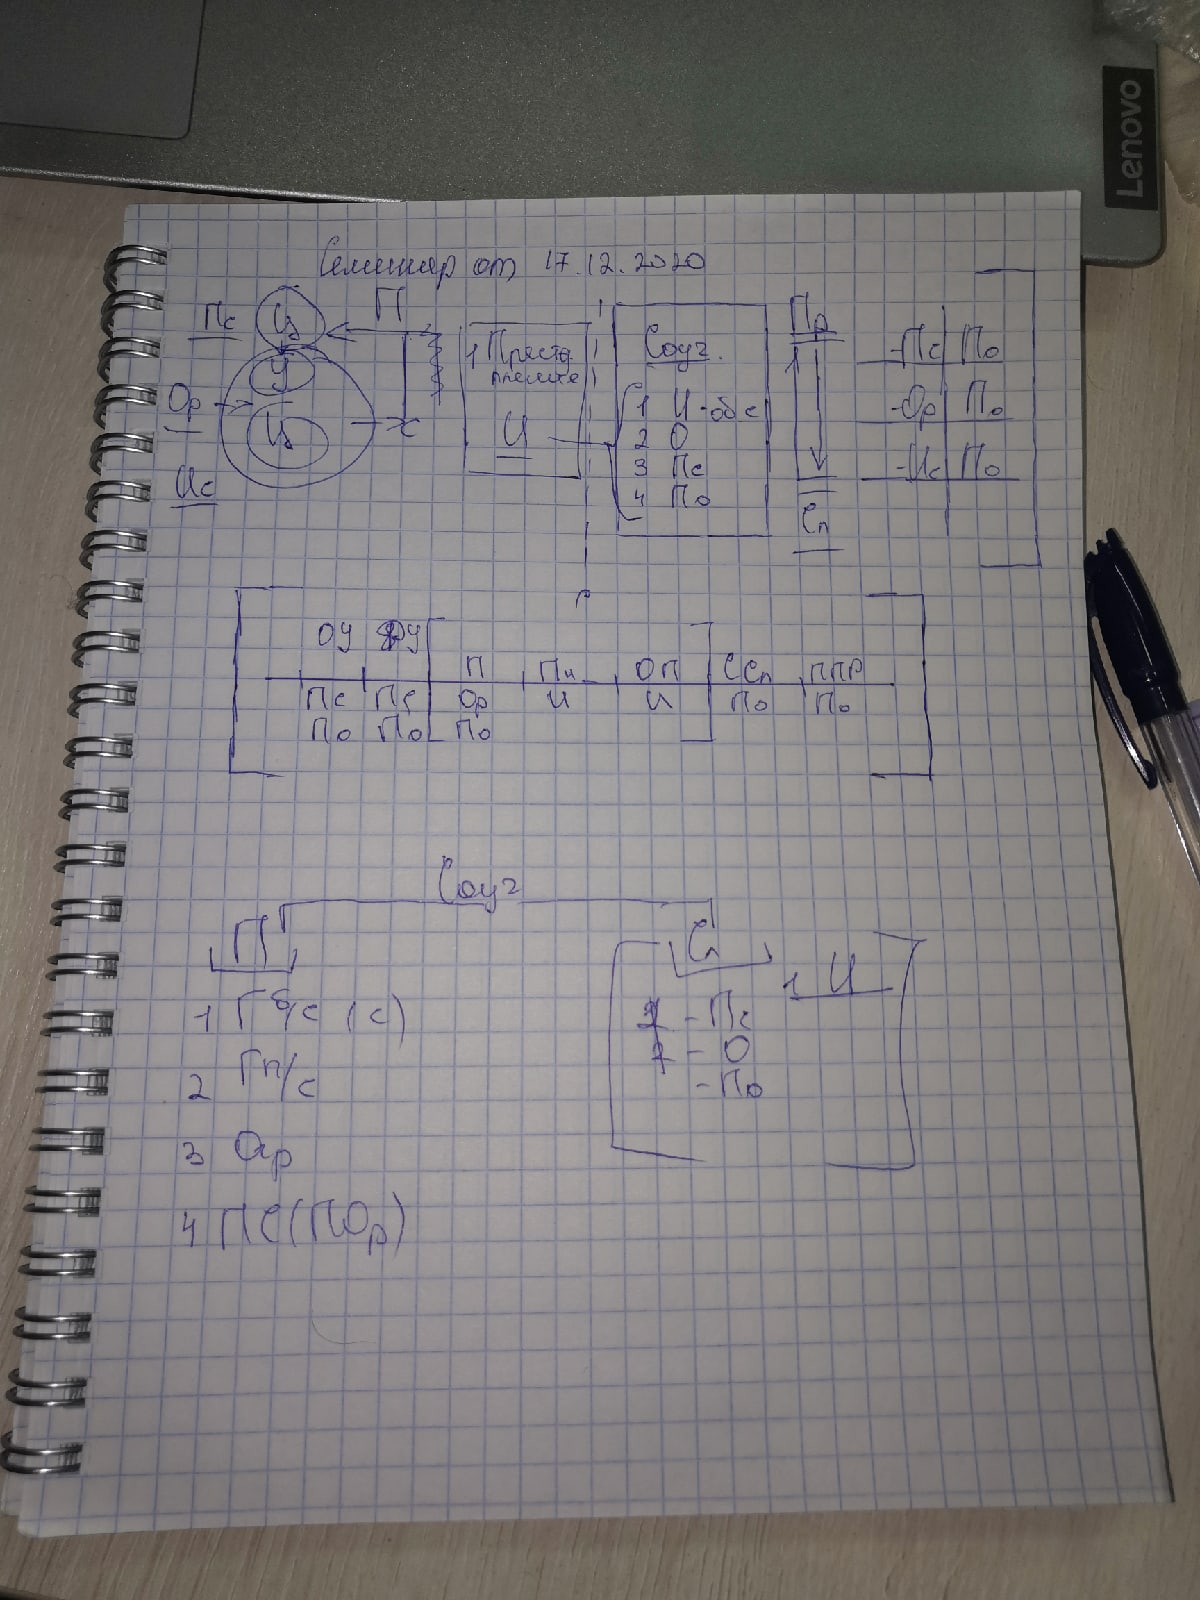 Lenovo
Семинар от 17.12.2020
Пс
Ц
П
У
Ор
Ц
Ис
1
И
Соуч.
1 И-обс
2 О
3 Пс
4 По
Пр
Сп
-Пс По
-Ор По
-Ис По
ОУ ФУ П ОП ССп ППР
Пс Пс Ор И И По По
По По По
Соуч
П
1 Гб/с (с)
2 Гп/с
3
4 ПС(ПОр)
Сп
1 И
- Пс
- О
- По